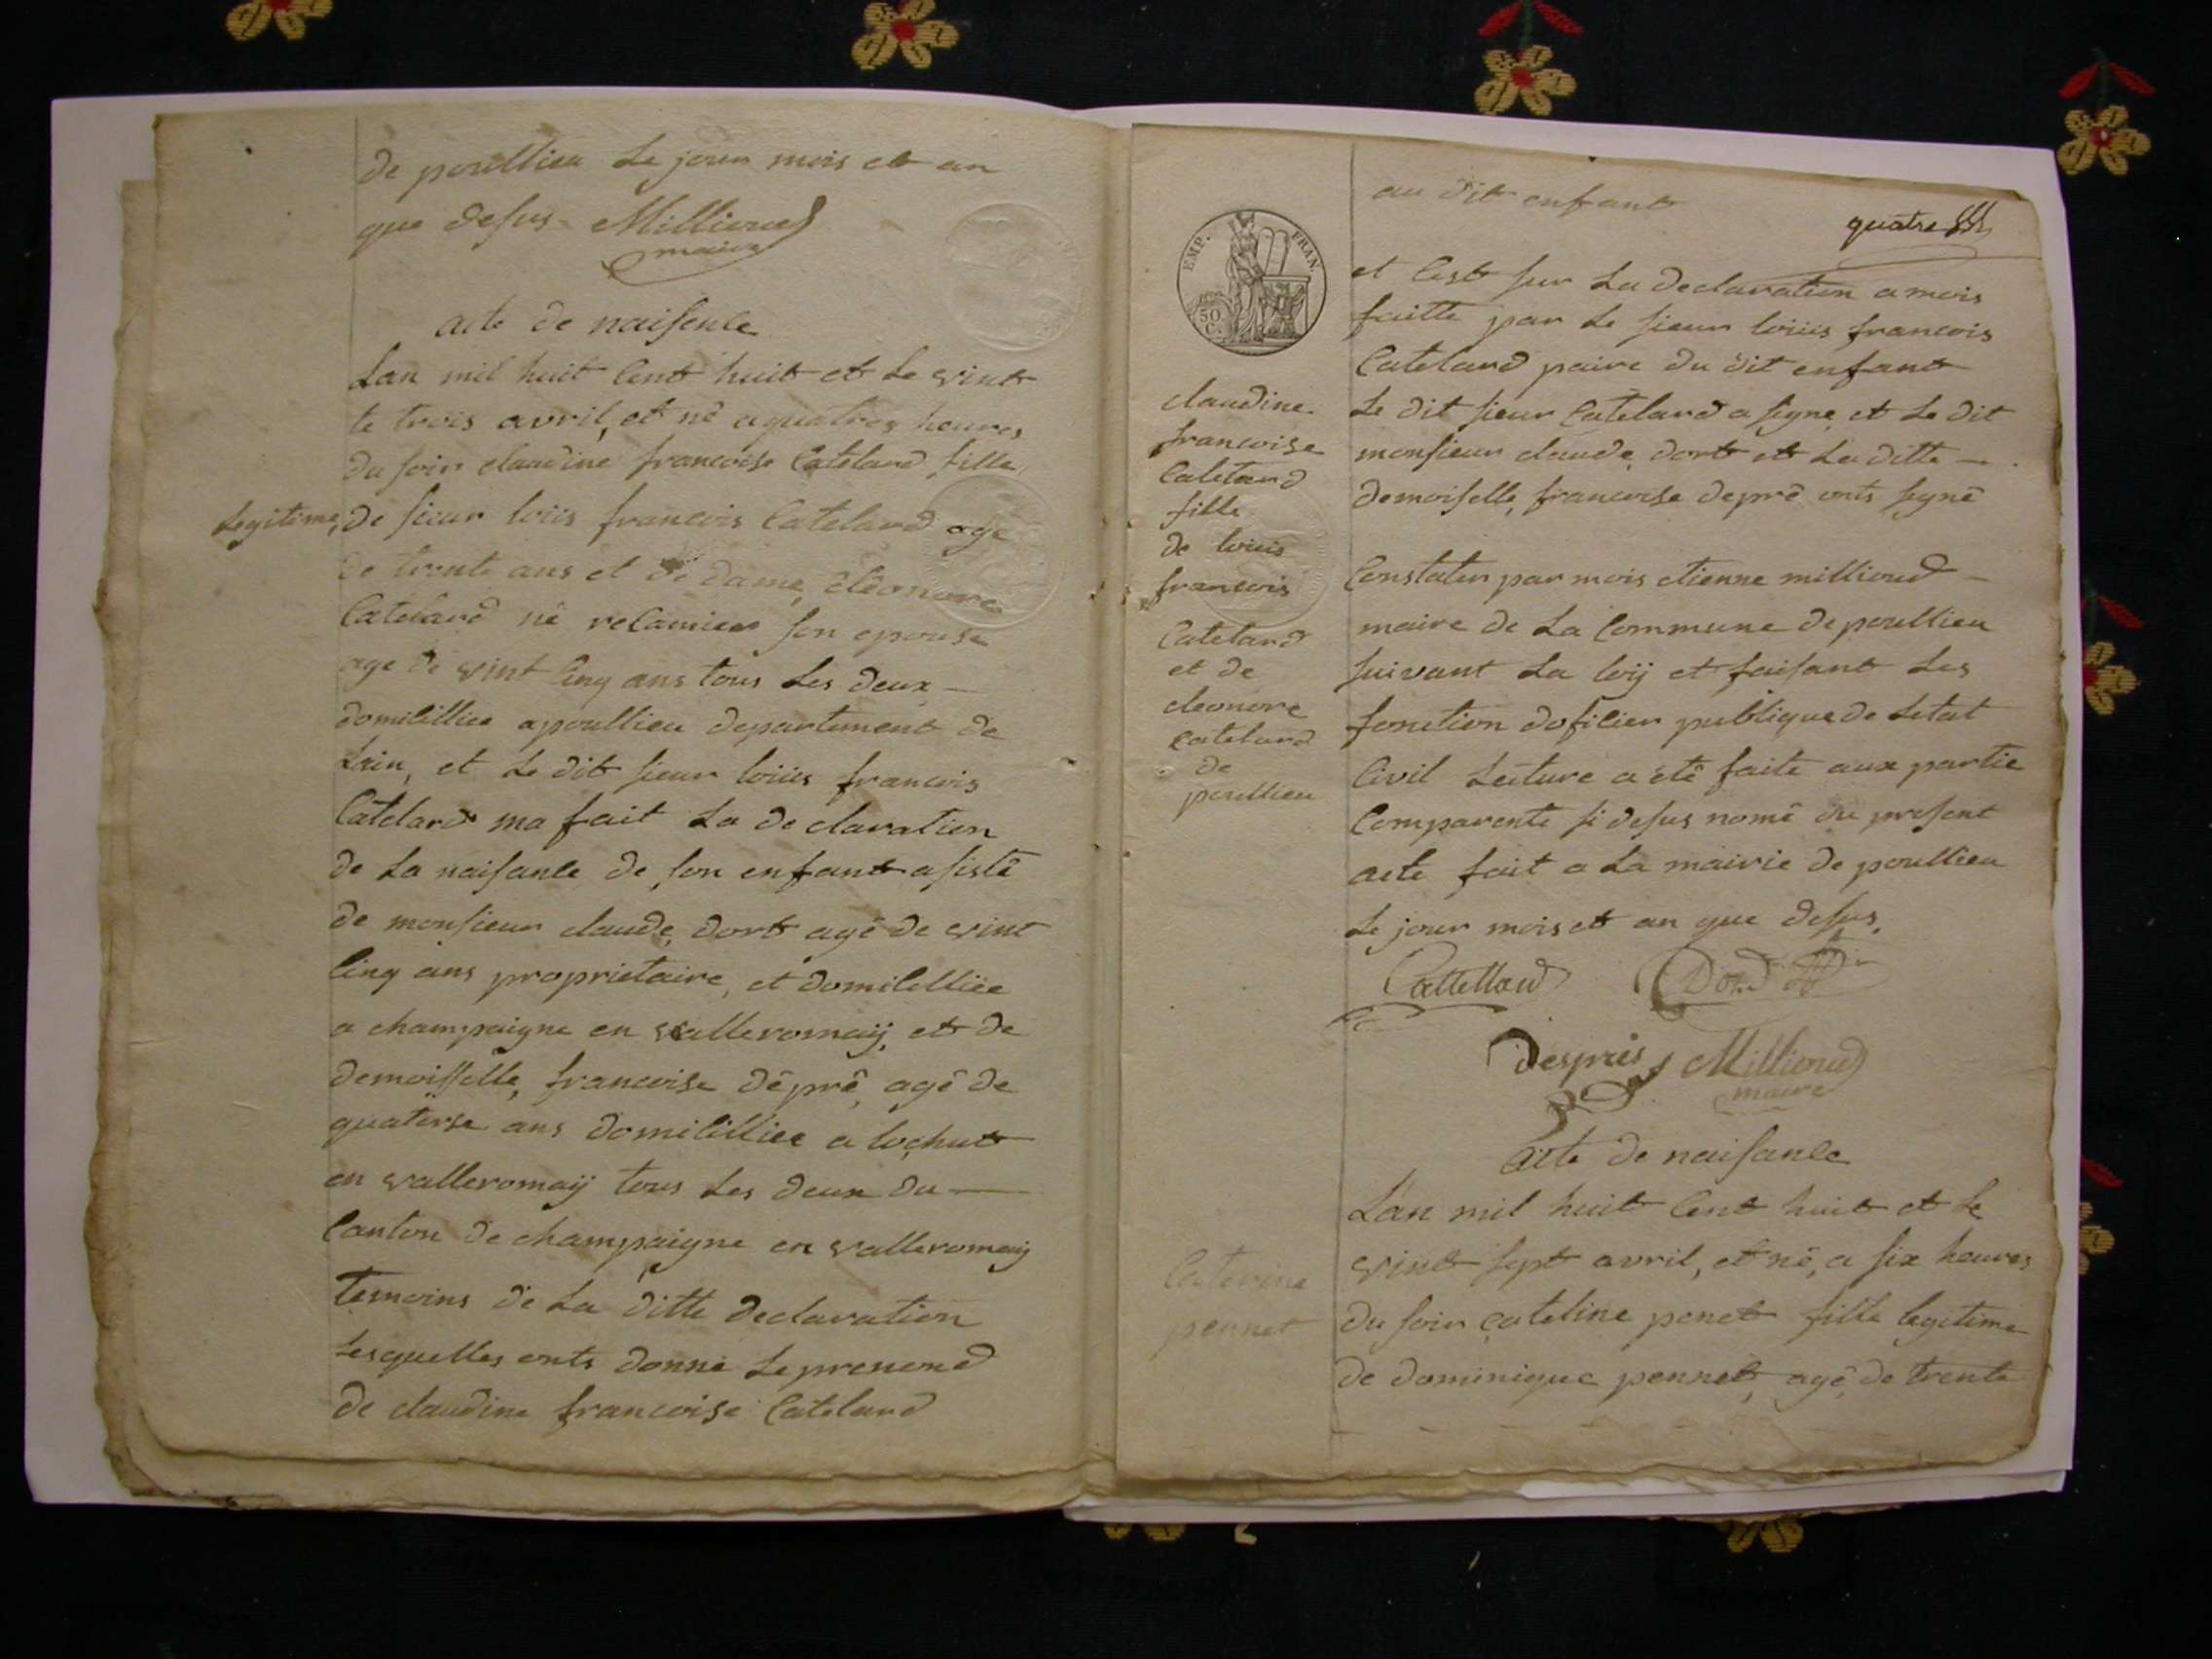 de poullieu Le jour mois et an
que desus Millioud
maire
acte de naisence
Lan mil huit Cent huit et Le vint
te trois avril, et né a quatres heures
du soir claudine francoise Catelard fille
Legitime, de sieur loüis francois Catelard age
de trente ans et de dame, éléonore
Catelard né relamier son epouse
age de vint Cinq ans tous Les deux
domicilliee a poullieu departement de
Lain, et Le dit sieur loüis francois
Catelard ma fait La declaration
de La naisance de son enfant asisté
de monsieur claude, dort agé de vint
Cinq ans proprietaire, et domicelliée
a champaigne en valleromaÿ, et de
demoisselle, francoise dépré, agé de
quatorse ans domicilliee a lochut
en valleromaÿ tous Les deux du
Canton de champaigne en valleromaÿ
temoins de La ditte declaration
Lesquelles onts donné Le prenond
de claudine francoise Catelard
au dit enfant
quatre
EMP. FRAN.
50
C.
et Cest sur La declaration a mois
faitte par Le sieur loüis francois
Catelard paire du dit enfant
Le dit sieur Catelard a signe, et Le dit
monsieur claude, dort et La ditte
demoiselle, francoise depré onts signé
claudine
francoise
Catelard
fille
de louis
francois
Catelard
et de
eleonore
catelard
de
poullieu
Constater par mois etienne millioud
maire de La Commune de poullieu
suivant La loÿ et faisant Les
fonction doficier publique de Letat
Civil Lecture a été faite aux partie
Comparente si desus nomé du present
acte fait a La mairie de poullieu
Le jour mois et an que desus.
Cattellard Dord
despres Millioud
maire
acte de naisance
L'an mil huit Cent huit et Le
vint sept avril, et né, a six heures
du soir cateline penet fille legitime
de dominique pennet, agé, de trente
Caterine
pennet